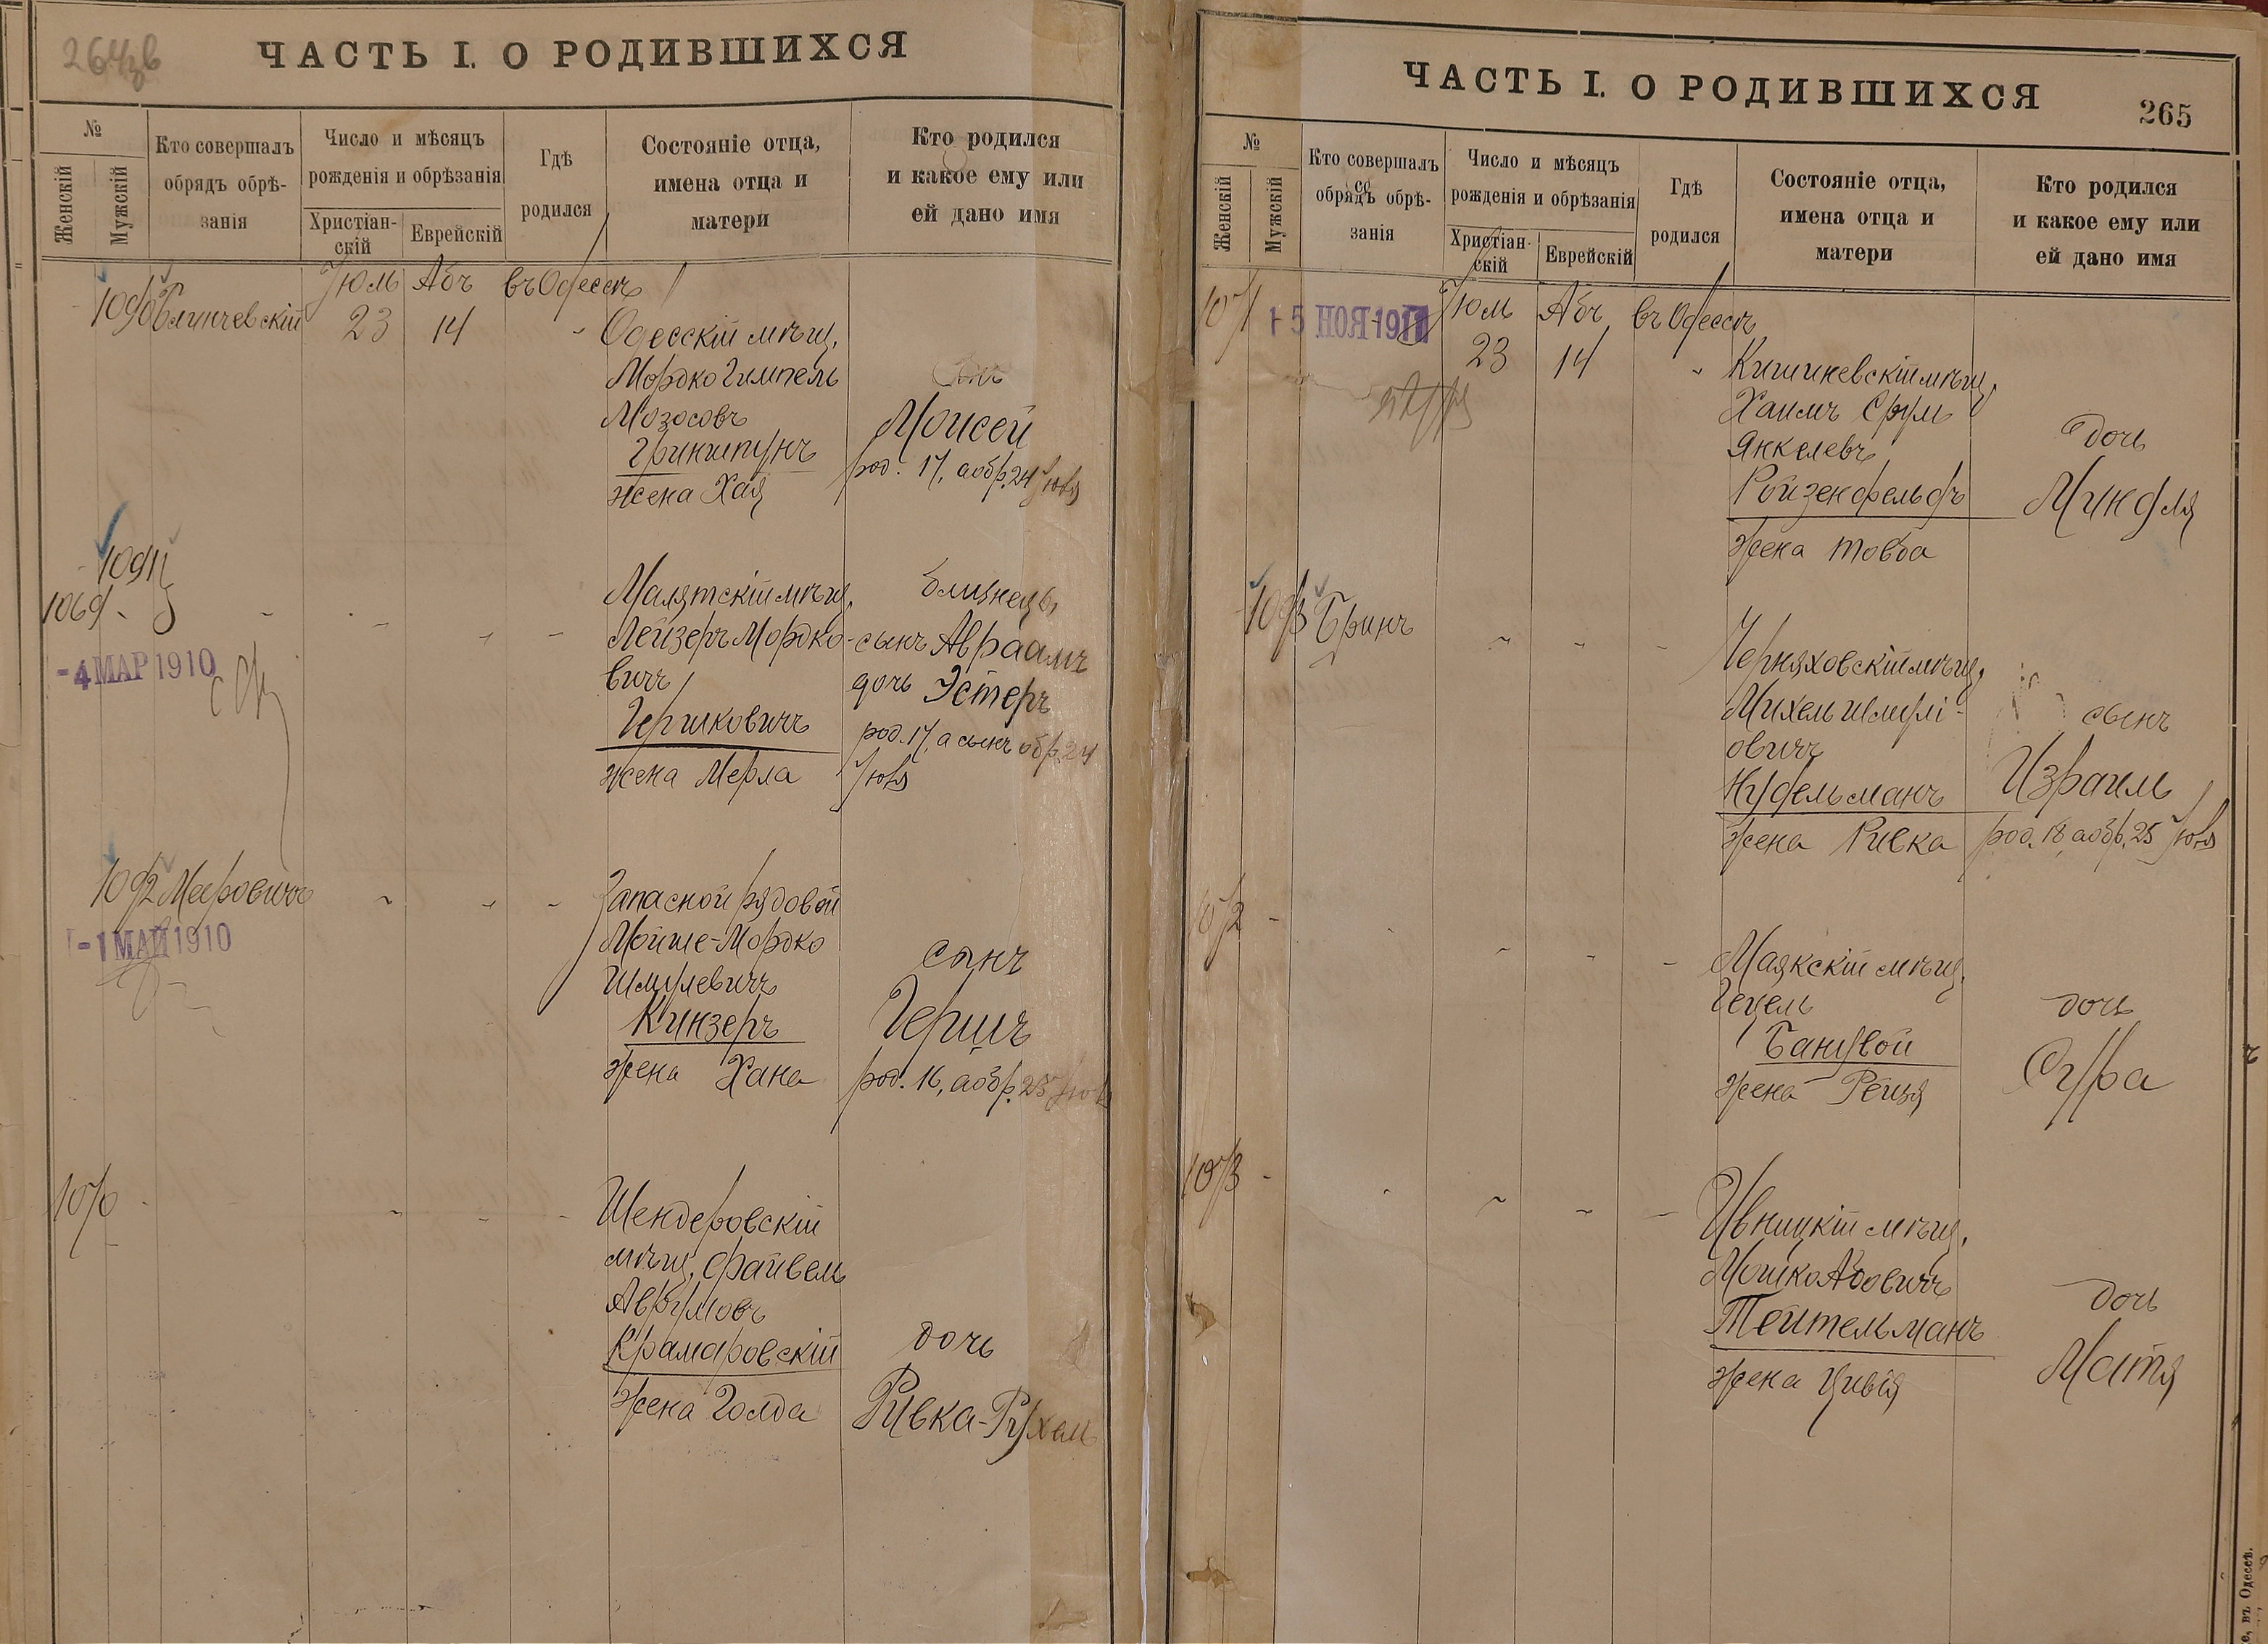 264зв
ЧАСТЬ I. О РОДИВШИХСЯ
№
Женскій
Мужскій
Кто совершалъ
обрядъ обрѣ-
занія
Число и мѣсяцъ
рожденія и обрѣзанія
Христіан-
скій
Еврейскій
Гдѣ
родился
Состояніе отца,
имена отца и
матери
Кто родился
и какое ему или
ей дано имя
Іюль Абъ въ Одессѣ
1090 23 14 Одесскій мѣщ.
Мордко Гимпель
Мозосовъ
Гриншпунъ
жена Хая
Сынъ
Моисей
род. 17, а обр. 24 Іюля
1091
1069
- 4 МАР 1910
Малятскій мѣщ.
Лейзеръ Мордко-
вичъ
Гершковичъ
жена Мерла
близнецы
сынъ Авраамъ
дочь Эстеръ
род. 17, а сынъ обр. 24
Іюля
1092 Мееровичъ
- 1 МАЙ 1910
Запасной рядовой
Мойше-Мордко
Шмулевичъ
Кинзеръ
жена Хана
сынъ
Гершъ
род. 16, а обр. 23 Іюля
1070 -
Шендеровскій
мѣщ. Файвель
Аврумовъ
Крамаровскій
жена Голда
дочь
Ривка-Рухель
ЧАСТЬ I. О РОДИВШИХСЯ
265
№
Женскій
Мужскій
Кто совершалъ
обрядъ обрѣ-
занія
Число и мѣсяцъ
рожденія и обрѣзанія
Христіан-
скій
Еврейскій
Гдѣ
родился
Состояніе отца,
имена отца и
матери
Кто родился
и какое ему или
ей дано имя
1071 Іюль Абъ въ Одессѣ
23 14
Кишиневскій мѣщ.
Хаимъ Срул
Янкелевъ
Ройзенфельдъ
жена Товба
дочь
Миндля
1093 Бринъ
Черняховскій мѣщ.
Михель Шмулі-
овичъ
Нудельманъ
жена Ривка
сынъ
Израиль
род. 18, а обр. 25 Іюля
1072 -
Маякскій мѣщ.
Гецель
Банувой
жена Рейзя
дочь
Сура
1073 -
Ивницкій мѣщ.
Мошко Абовичъ
Тейтельманъ
жена Цивія
дочь
Мотя
е, въ Одессѣ.